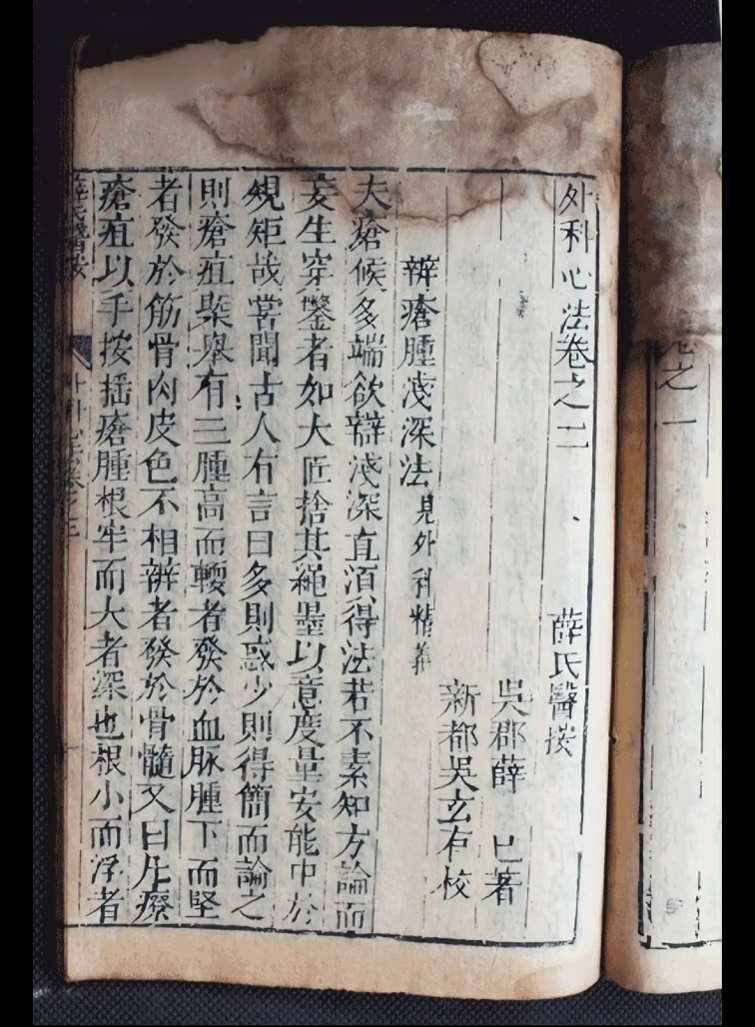 卷之一
外科心法卷之二 薛氏醫按
吳郡薛 己著
新都吳玄有校
辨瘡腫淺深法見外科精義
夫瘡候多端欲辯淺深直須得法若不素知方論而
妄生穿鑿者如大匠捨其繩墨以意度量安能中於
規矩哉嘗聞古人有言曰多則惑少則得簡而論之
則瘡疽槩舉有三腫高而軟者發於血脉腫下而堅
者發於筋骨肉皮色不相辨者發於骨髓又曰凡療
瘡疽以手按搖瘡腫根牢而大者深也根小而浮者
薛氏醫按